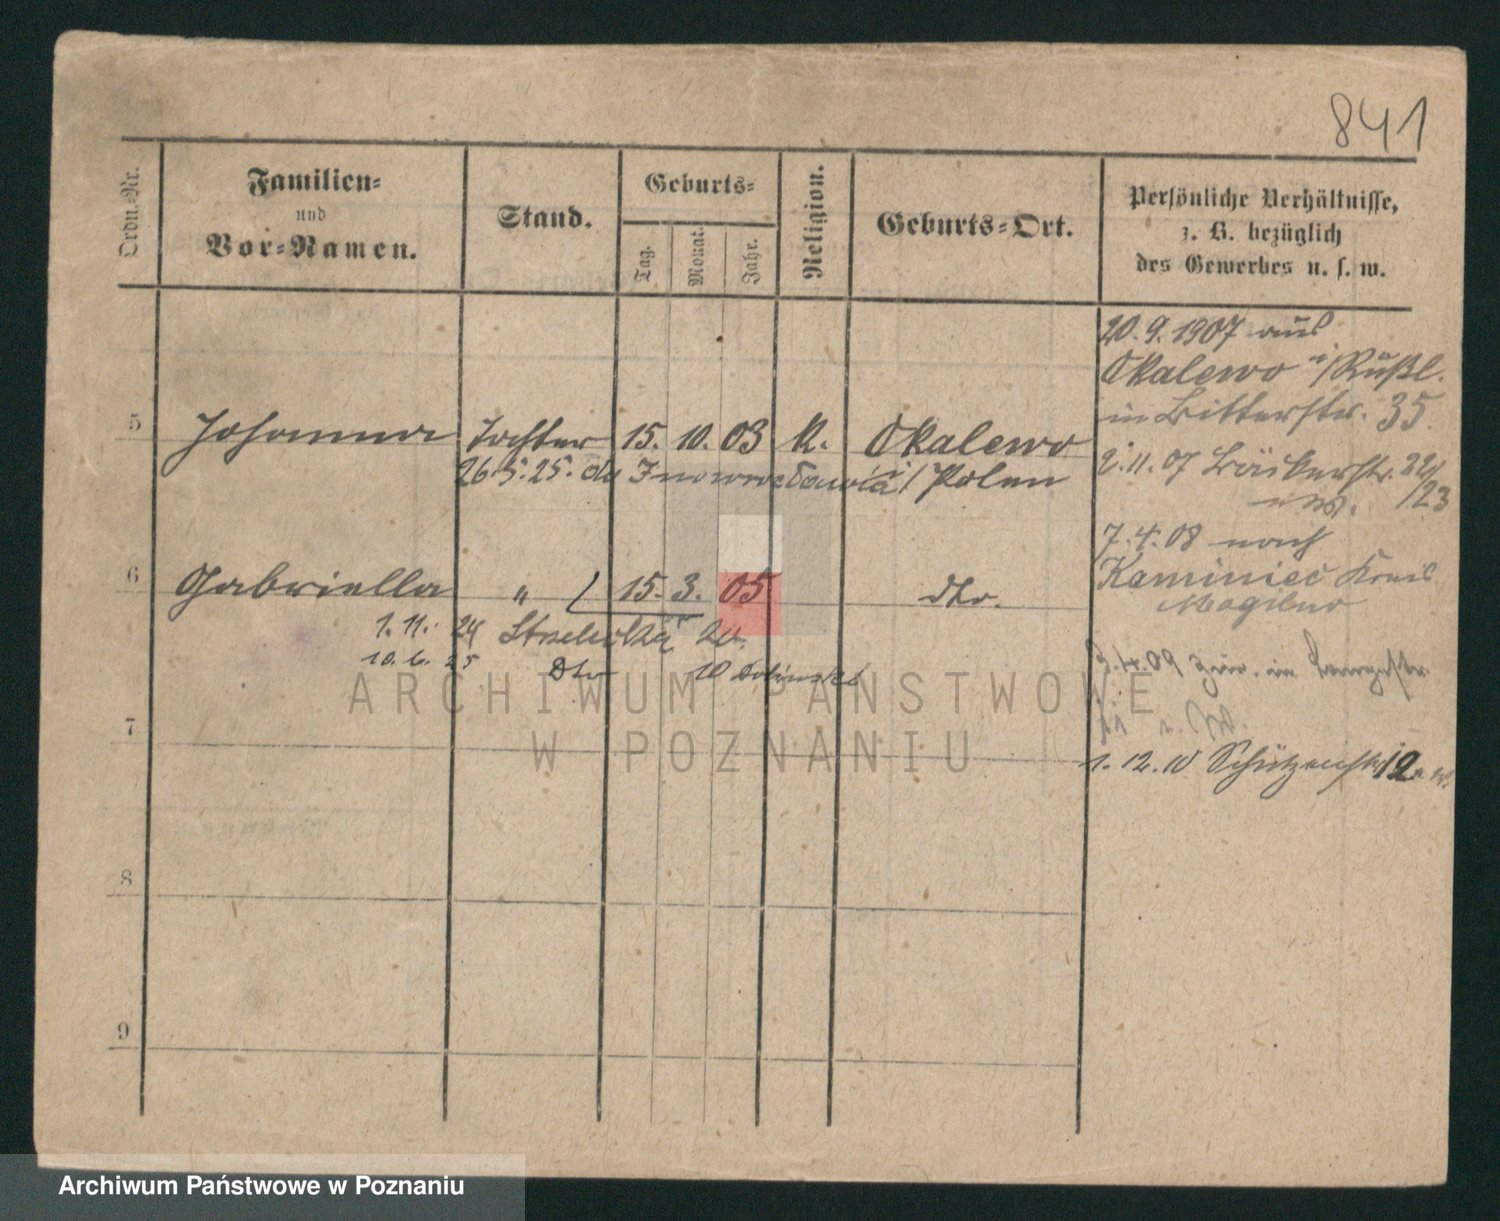 841
Ordn.-Nr.
Familien-
und
Vor-Namen.
Stand.
Geburts-
Tag.
Monat.
Jahr.
Religion.
Geburts-Ort.
Persönliche Verhältnisse,
z. B. bezüglich
des Gewerbes u. s. w.
20.9.1907 aus
Okalewo i/Rußl.
in Bitterstr. 35.
5 Johanna Tochter 15. 10. 03 K. Okalewo
26.5.25. do Inowrocławia i/Polen
2.11.07 Bäckerstr. 22/
/23
7.4.08 nach
Kaminiec Kreis
Mogilno
6 Gabriella " 15. 3. 05 dto.
1.11. 24
10.6. 25 Dto 10
3.4.09 zur. in Langestr.
7
1.12.10 Schützenstr 19
8
9
ARCHIWUM PAŃSTWOWE
W POZNANIU
Archiwum Państwowe w Poznaniu